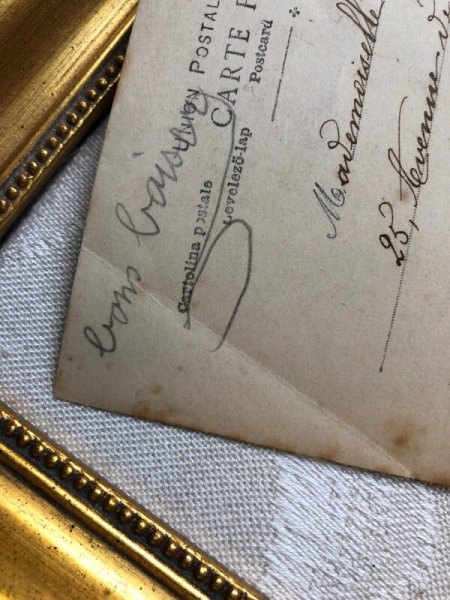 UNION POSTAL
CARTE P
Postcard
Cartolina postale
Levelező-lap
bons baisers
Mademoiselle
25, Avenue de